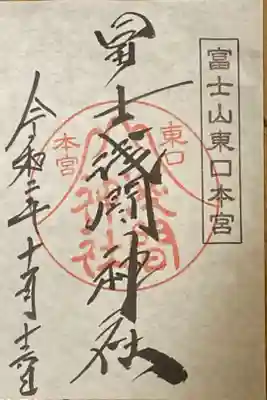 富士山東口本宮
冨士浅間神社
東口
本宮
浅間
神社
令和二年十月十六日